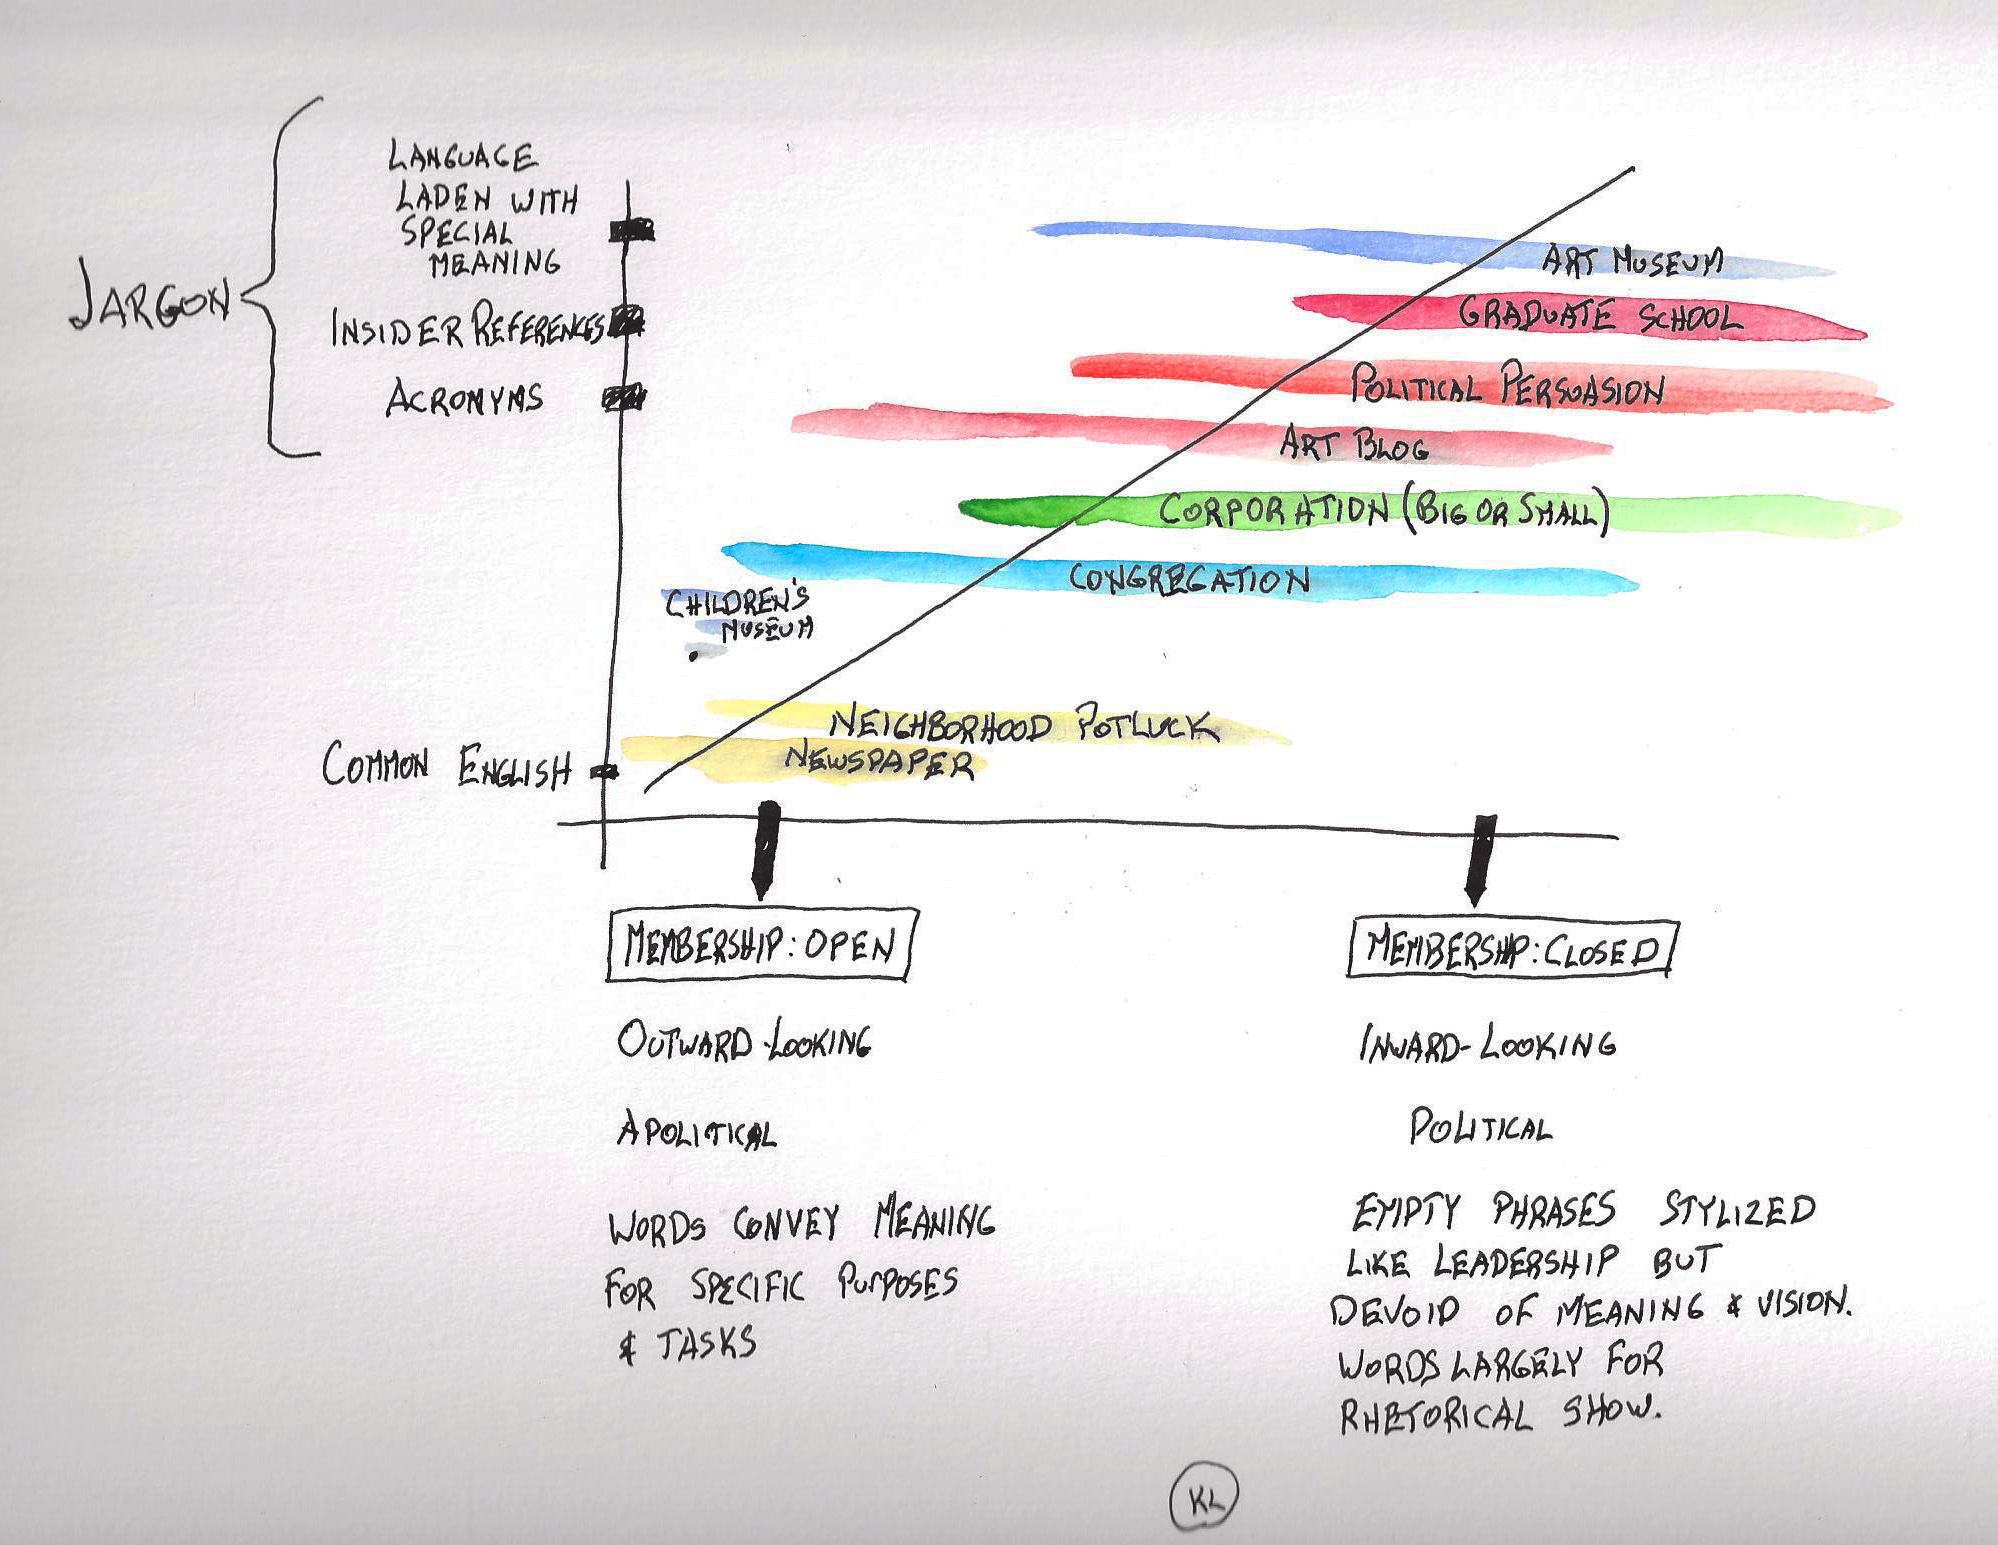 LANGUAGE
LADEN WITH
SPECIAL
MEANING
JARGON
INSIDER REFERENCES
ACRONYMS
COMMON ENGLISH
ART MUSEUM
GRADUATE SCHOOL
POLITICAL PERSUASION
ART BLOG
CORPORATION (BIG OR SMALL)
CONGREGATION
CHILDREN'S
MUSEUM
NEIGHBORHOOD POTLUCK
NEWSPAPER
MEMBERSHIP: OPEN
OUTWARD-LOOKING
APOLITICAL
WORDS CONVEY MEANING
FOR SPECIFIC PURPOSES
& TASKS
MEMBERSHIP: CLOSED
INWARD-LOOKING
POLITICAL
EMPTY PHRASES STYLIZED
LIKE LEADERSHIP BUT
DEVOID OF MEANING & VISION.
WORDS LARGELY FOR
RHETORICAL SHOW.
KL